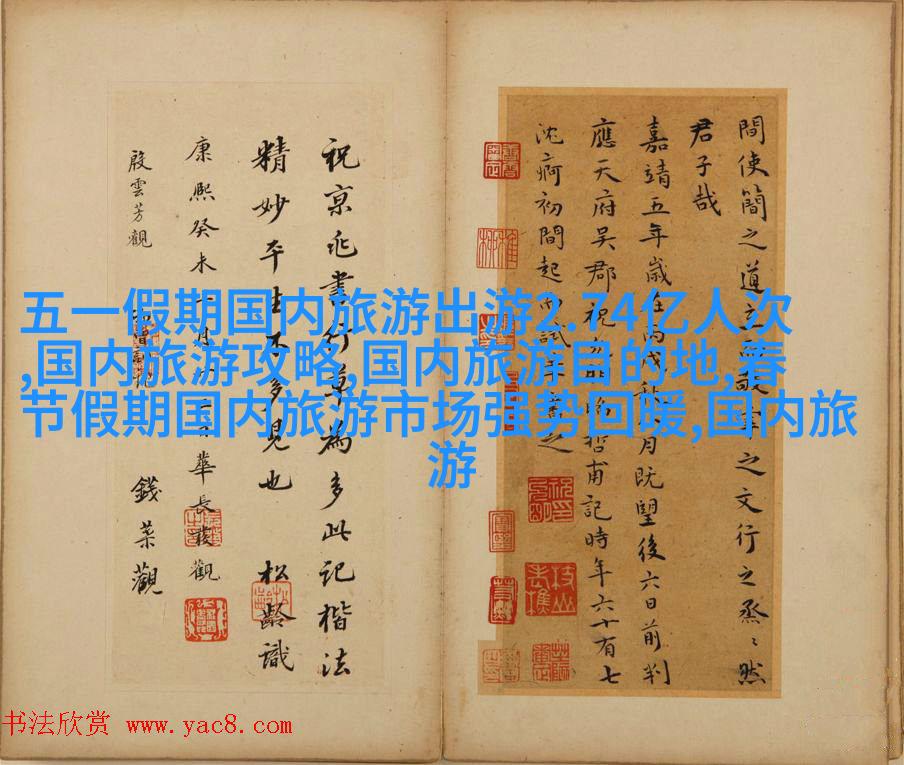 五一假期国内旅游出游2.74亿人次
,国内旅游攻略,国内旅游目的地,春
节假期国内旅游市场强势回暖,国内旅
游
間使簡之道立之文行之烝〻然
君子哉
嘉靖五年歲在丙戌秋月既望後六日前判
應天府吳郡祝允明希哲甫記時年六十有七
沈痾初間起而試筆書之
祝京兆書行草為多此記楷法
精妙平生不多見也 松齡識
康熙癸未十月十日華長發觀
殷雲芳觀
錢菜觀
书法欣赏 www.yac8.com